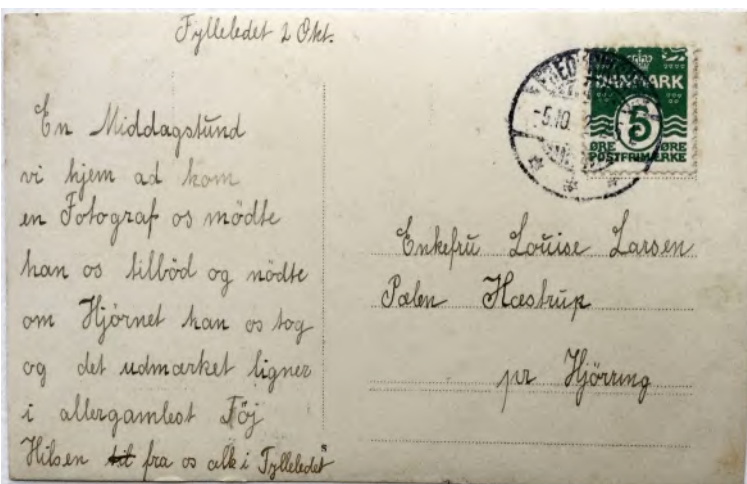 Fylleledet 2 Okt.
En Middagstund
vi hjem ad kom
en Fotograf os mödte
han os tilböd og nödte
om Hjörnet han os tog
og det udmærket ligner
i allergamlest Töj
Hilsen til fra os alle i Fylleledet
s
DANMARK
5
ØRE ØRE
POSTFRIMÆRKE
-5.10.
Enkefru Louise Larsen
Pælen Hæstrup
pr Hjörring